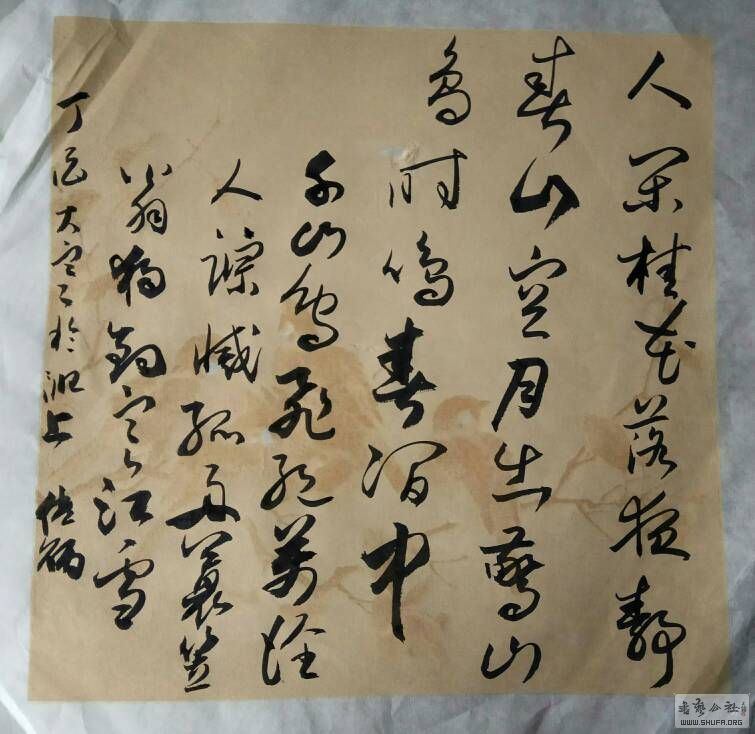 人閒桂花落夜靜
春山空月出驚山
鳥时鳴春澗中
千山鳥飛絕萬徑
人蹤滅孤舟蓑笠
翁獨釣寒江雪
丁酉大寒於上
書藝公社
WWW.SHUFA.ORG